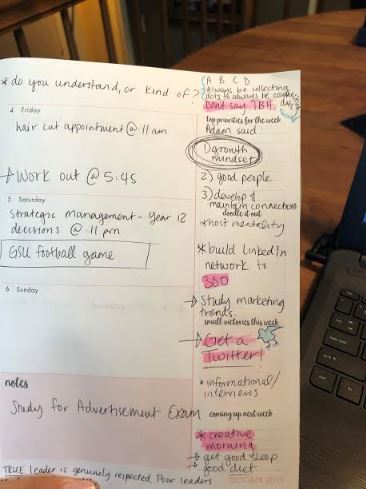 * do you understand, or kind of ?
A B C D
Always be collecting
dots to always be
Don't say TBH
4 Friday
top priorities for the week
hair cut appointment @ 11 am
Adam said
1) growth
mindset
→ Work out @ 5:45
2) good people
3) develop &
maintain connections
5 Saturday
doodle it out
Strategic Management - Year 12
decisions @ 11 pm
* host mentality
GSU football game
* build LinkedIn
network to
360
6 Sunday
→ Study marketing
trends
small victories this week
→ Get a
Twitter!
notes
• informational/
interviews
Study for Advertisement Exam
coming up next week
* creative
morning
→ get good sleep
→ good diet
TRUE leader is genuinely respected. Poor leaders
OCTOBER 2019